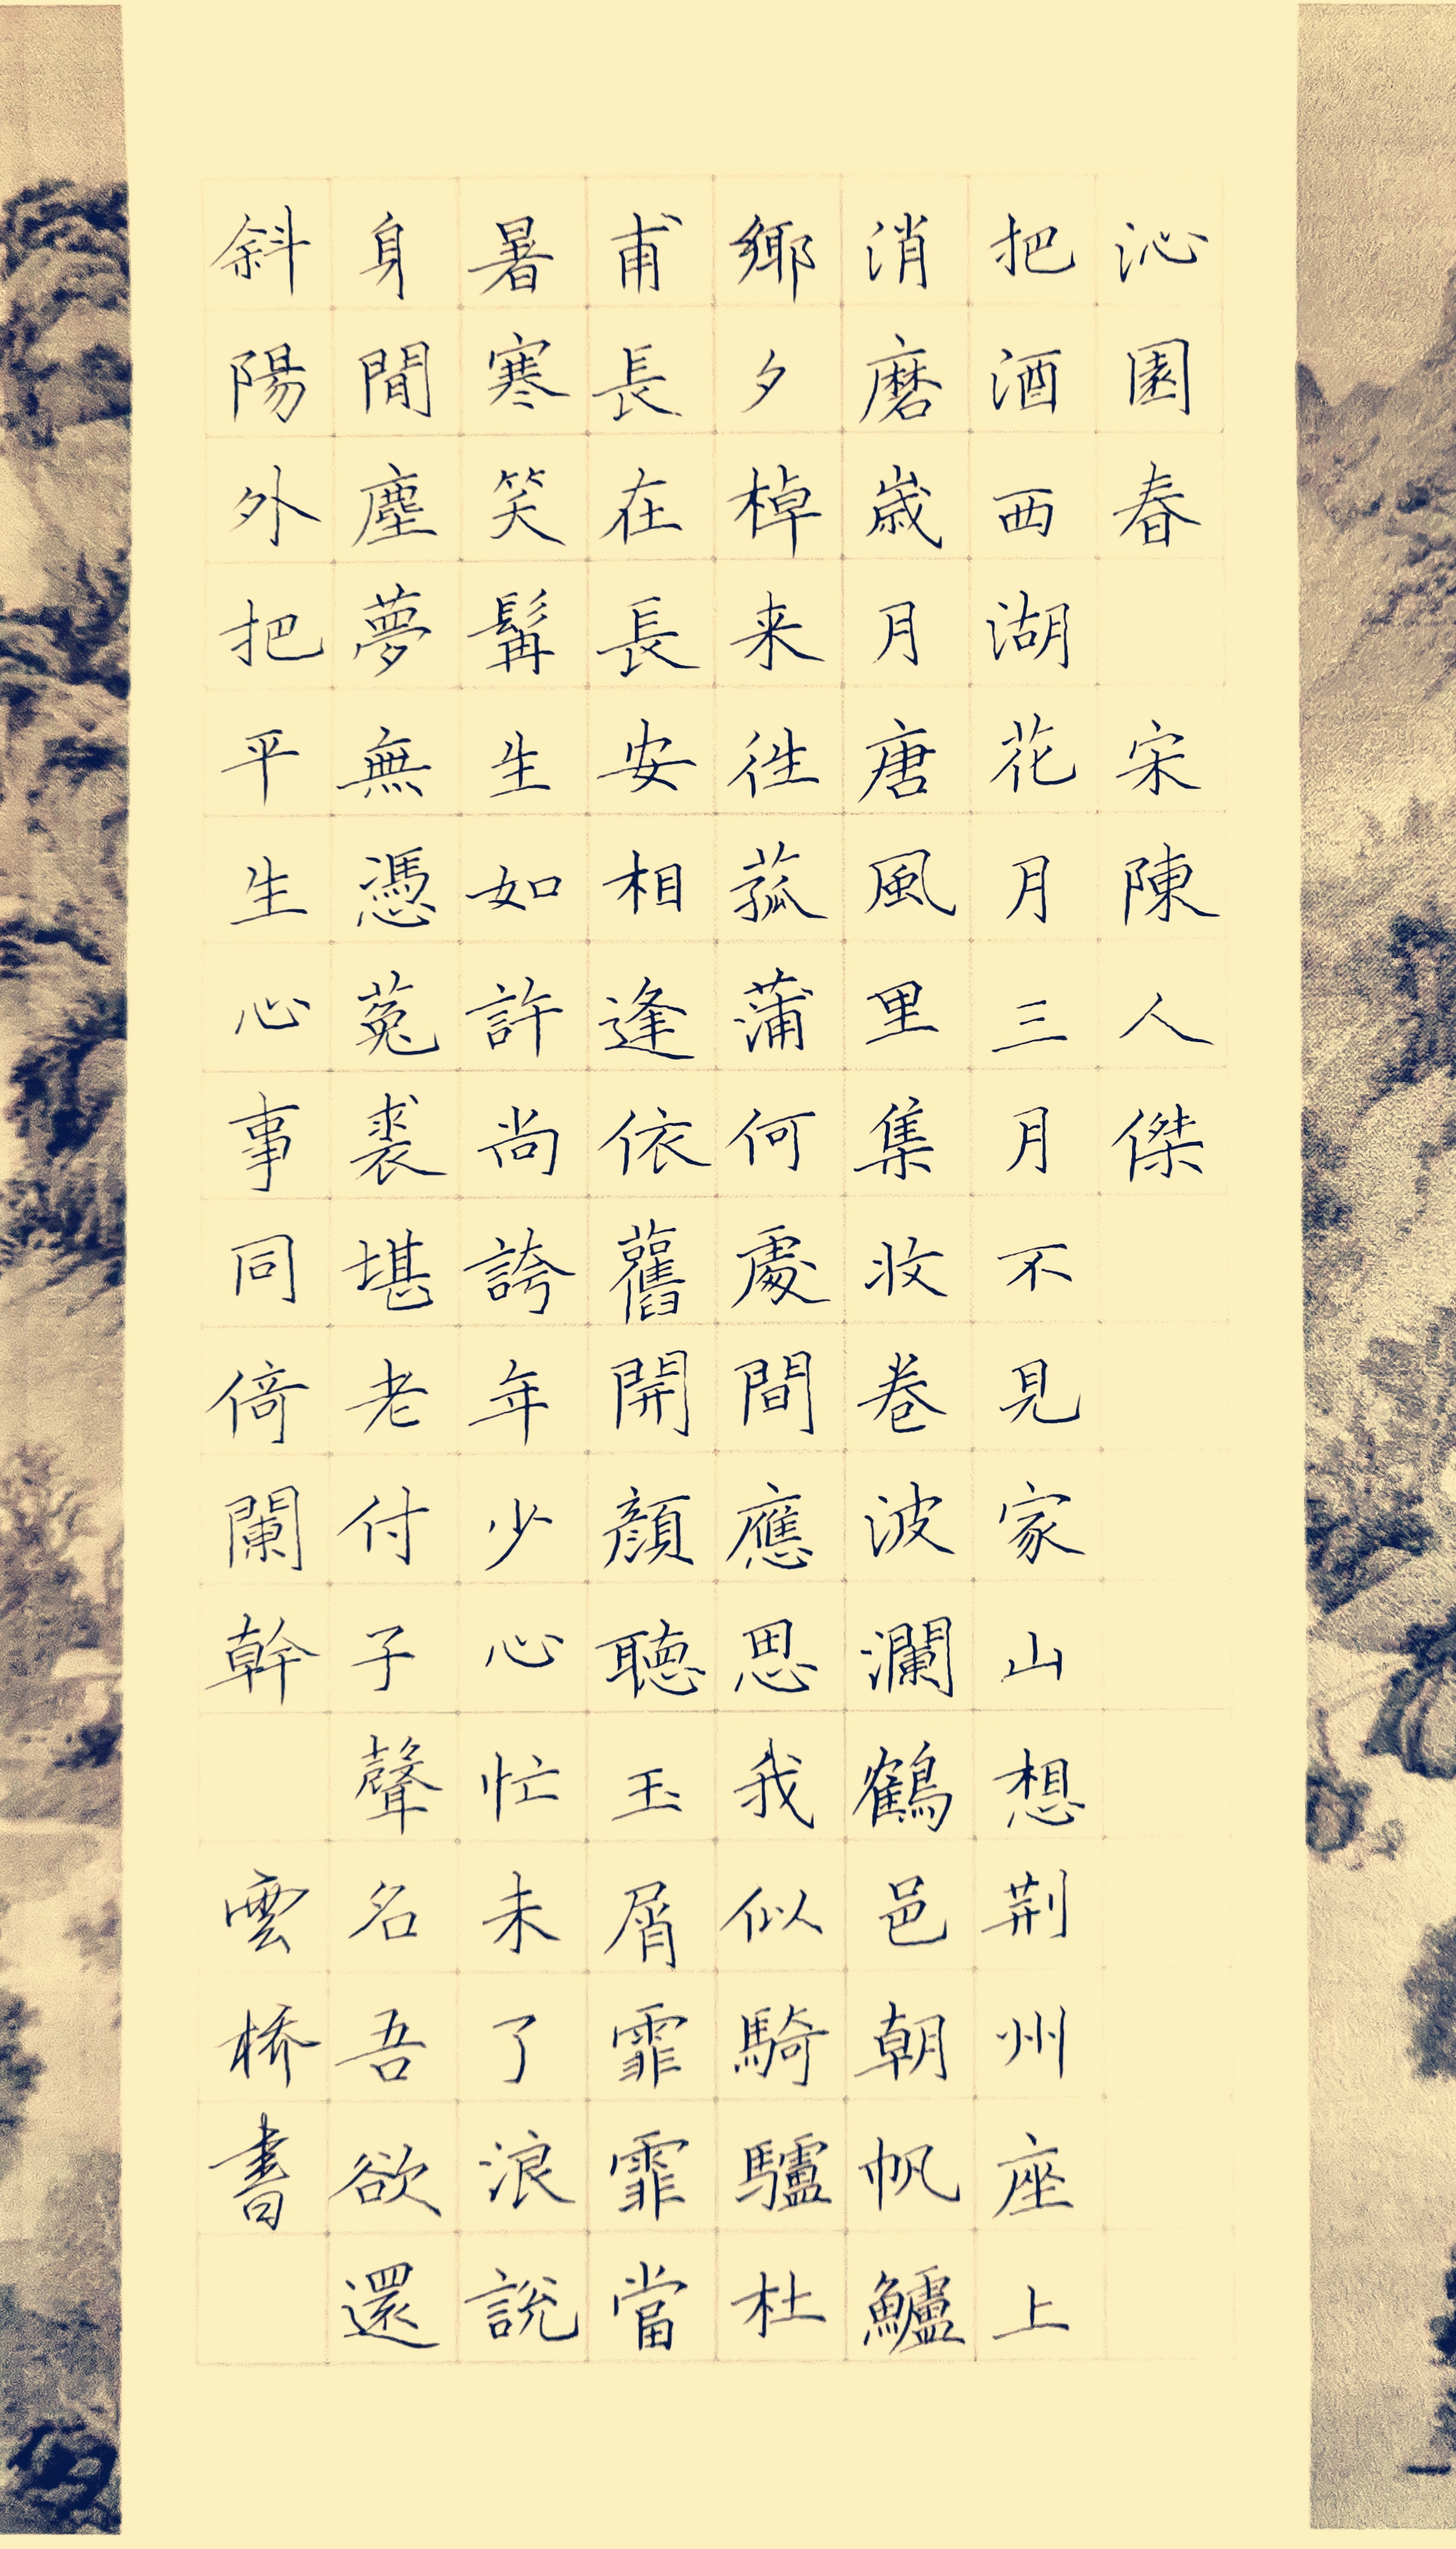 沁園春 宋 陳人傑
把酒西湖花月三月不見家山想荆州座上
消磨歲月唐風里集收卷波瀾鶴邑朝帆鱸
鄉夕棹来往菰蒲何處間應思我似騎驢杜
甫長在長安相逢依舊開顔聽玉屑霏霏當
暑寒笑髯生如許尚誇年少心忙未了浪説
身閒塵夢無憑菟裘堪老付子聲名吾欲還
斜陽外把平生心事同倚闌幹 雲橋書